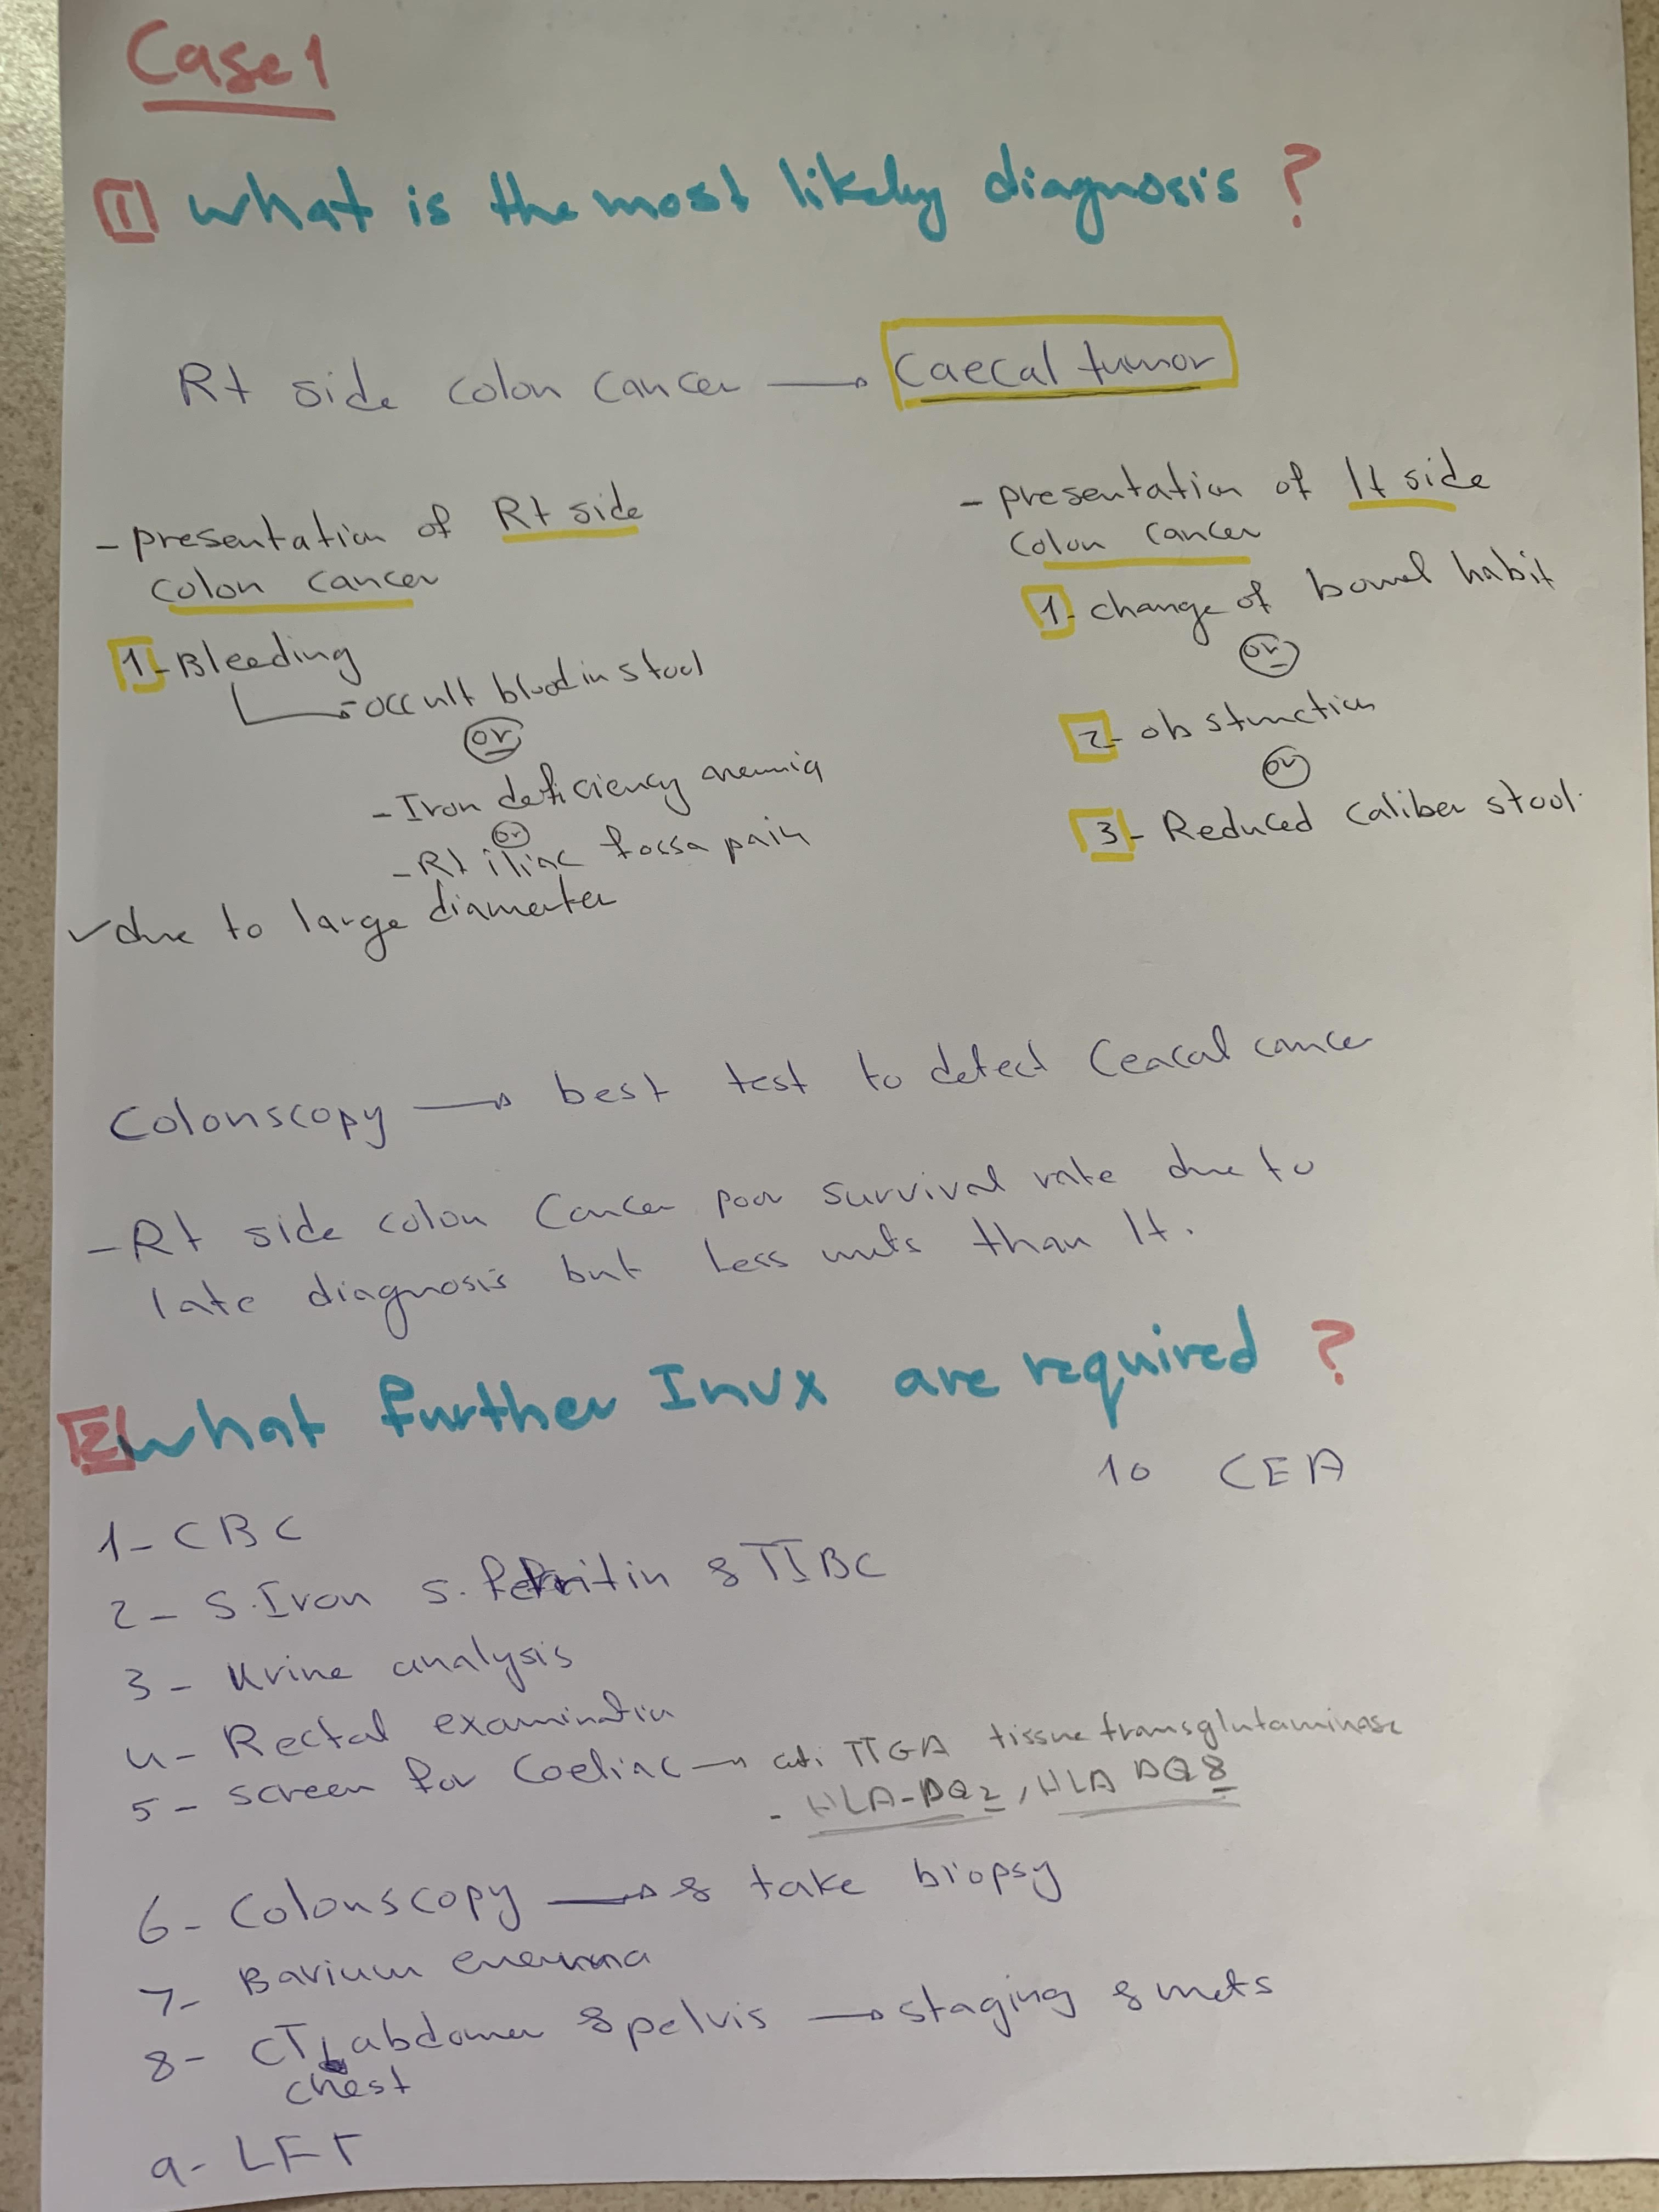 Case 1
1 what is the most likely diagnosis ?
Rt side colon cancer → Caecal tumor
- presentation of Rt side
colon cancer
1- Bleeding
- occult blood in stool
or
- Iron deficiency anemia
or
- Rt iliac fossa pain
✓ due to large diameter
- presentation of lt side
Colon cancer
1- change of bowel habit
or
2- obstruction
or
3- Reduced caliber stool.
Colonscopy → best test to detect Ceacal cancer
- Rt side colon Cancer poor survival rate due to
late diagnosis but less mets than lt.
2 what further Invx are required ?
10 CEA
1- CBC
2- S.Iron S. ferritin & TIBC
3- Urine analysis
4- Rectal examination
5- screen for Coeliac → TTGA tissue transglutaminase
- HLA-DQ2, HLA DQ8
6- Colonscopy → & take biopsy
7- Barium enema
8- CT, abdomen & pelvis → staging & mets
chest
9- LFT